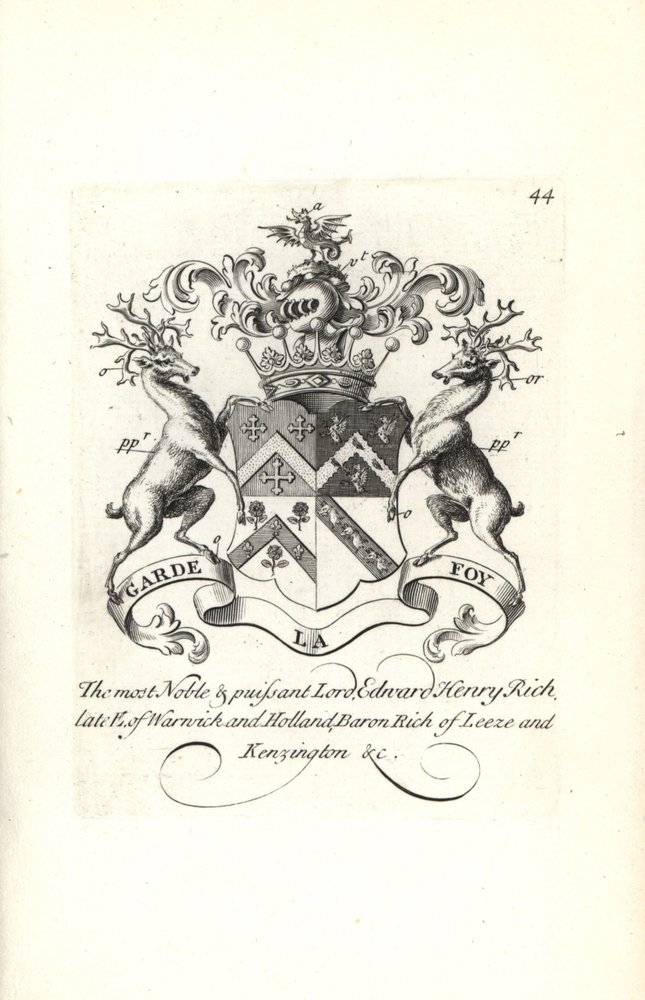 44
a
vt
o
or
ppr
ppr
o
o
GARDE LA FOY
The most Noble & puissant Lord, Edward Henry Rich,
late E. of Warwick and Holland, Baron Rich of Leeze and
Kenzington &c.